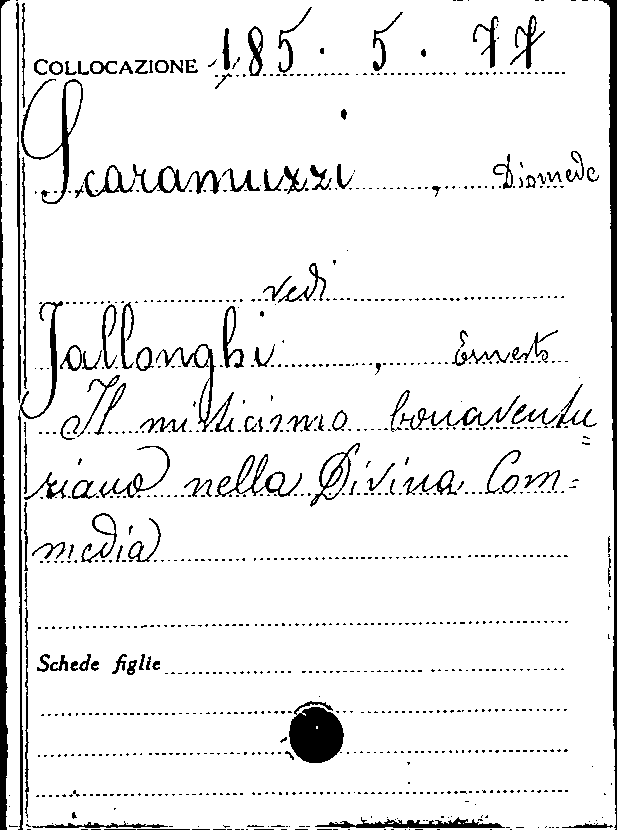 COLLOCAZIONE 185. 5. 77
Scaramuzzi, Diomede
vedi
Jallonghi, Ernesto
Il misticismo bonaventu=
riano nella Divina Com=
media
Schede figlie